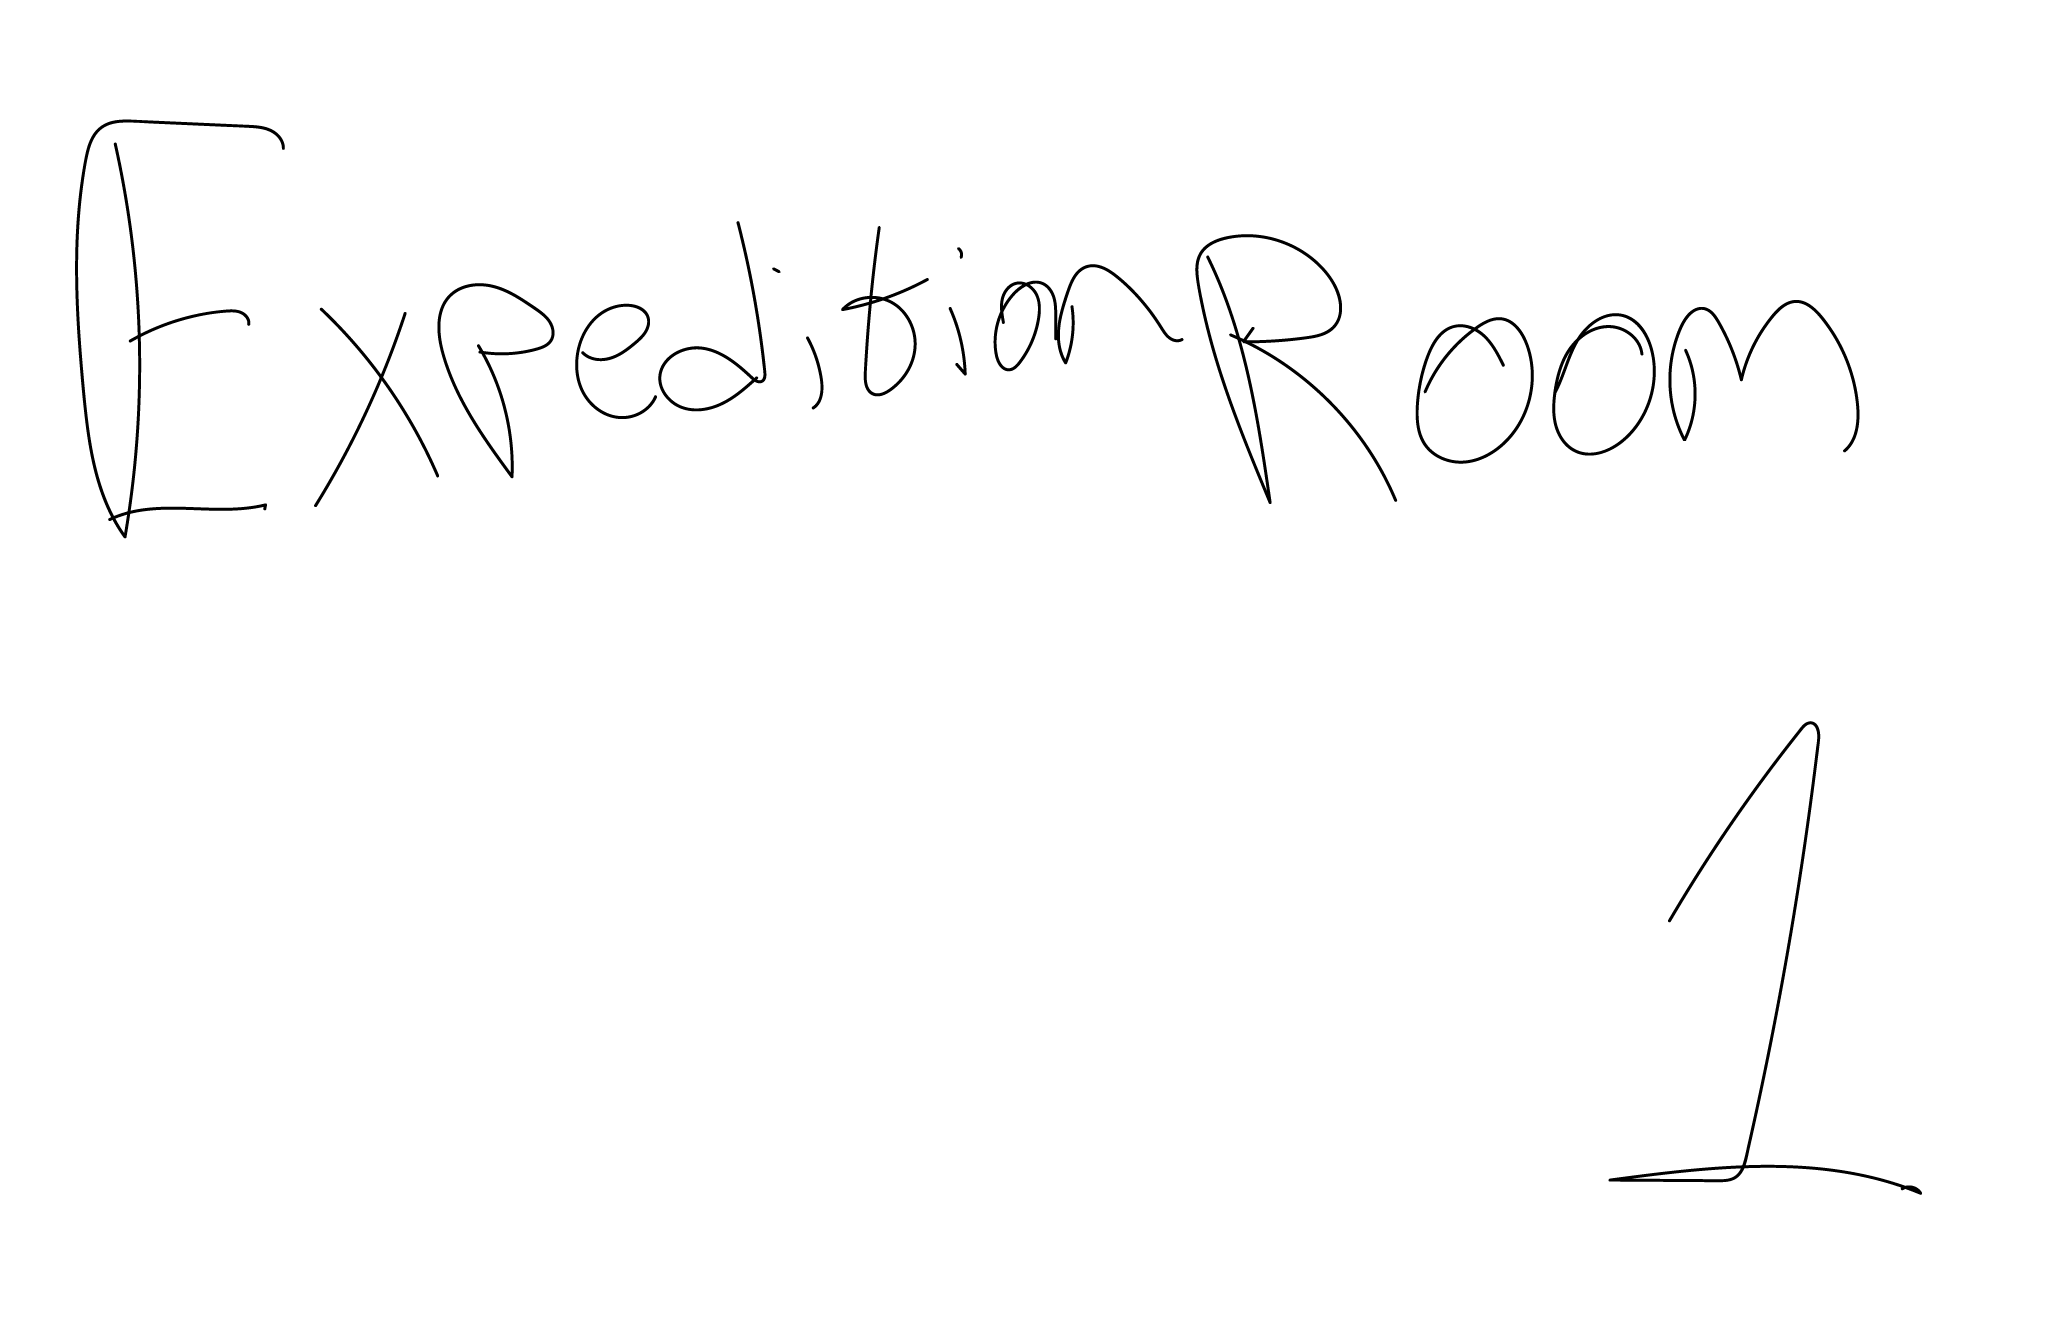 Expedition Room
1